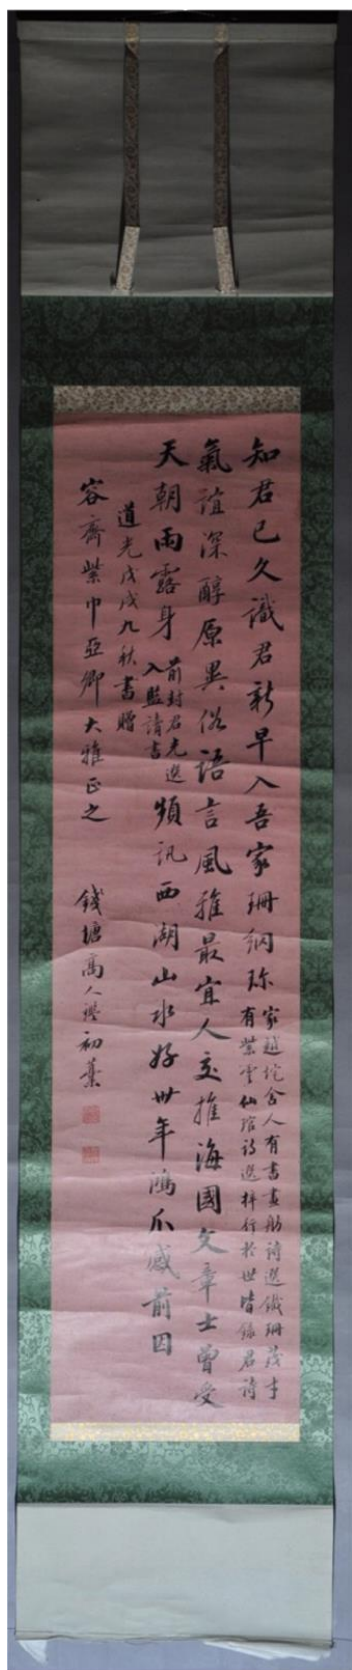 知君已久識君新早入吾家珊網珎
家越垞舍人有書畫舫詩選鐵珊茂才
有紫雲仙琯詩選梓行於世皆錄君詩
氣誼深醇原異俗語言風雅最宜人交推海國文章士曾受
天朝雨露身
前封君先進
入監讀書
頻訊西湖山水好卅年鴻爪感前因
道光戊戌九秋書贈
容齋紫巾亞卿大雅正之
錢塘高人
初藁